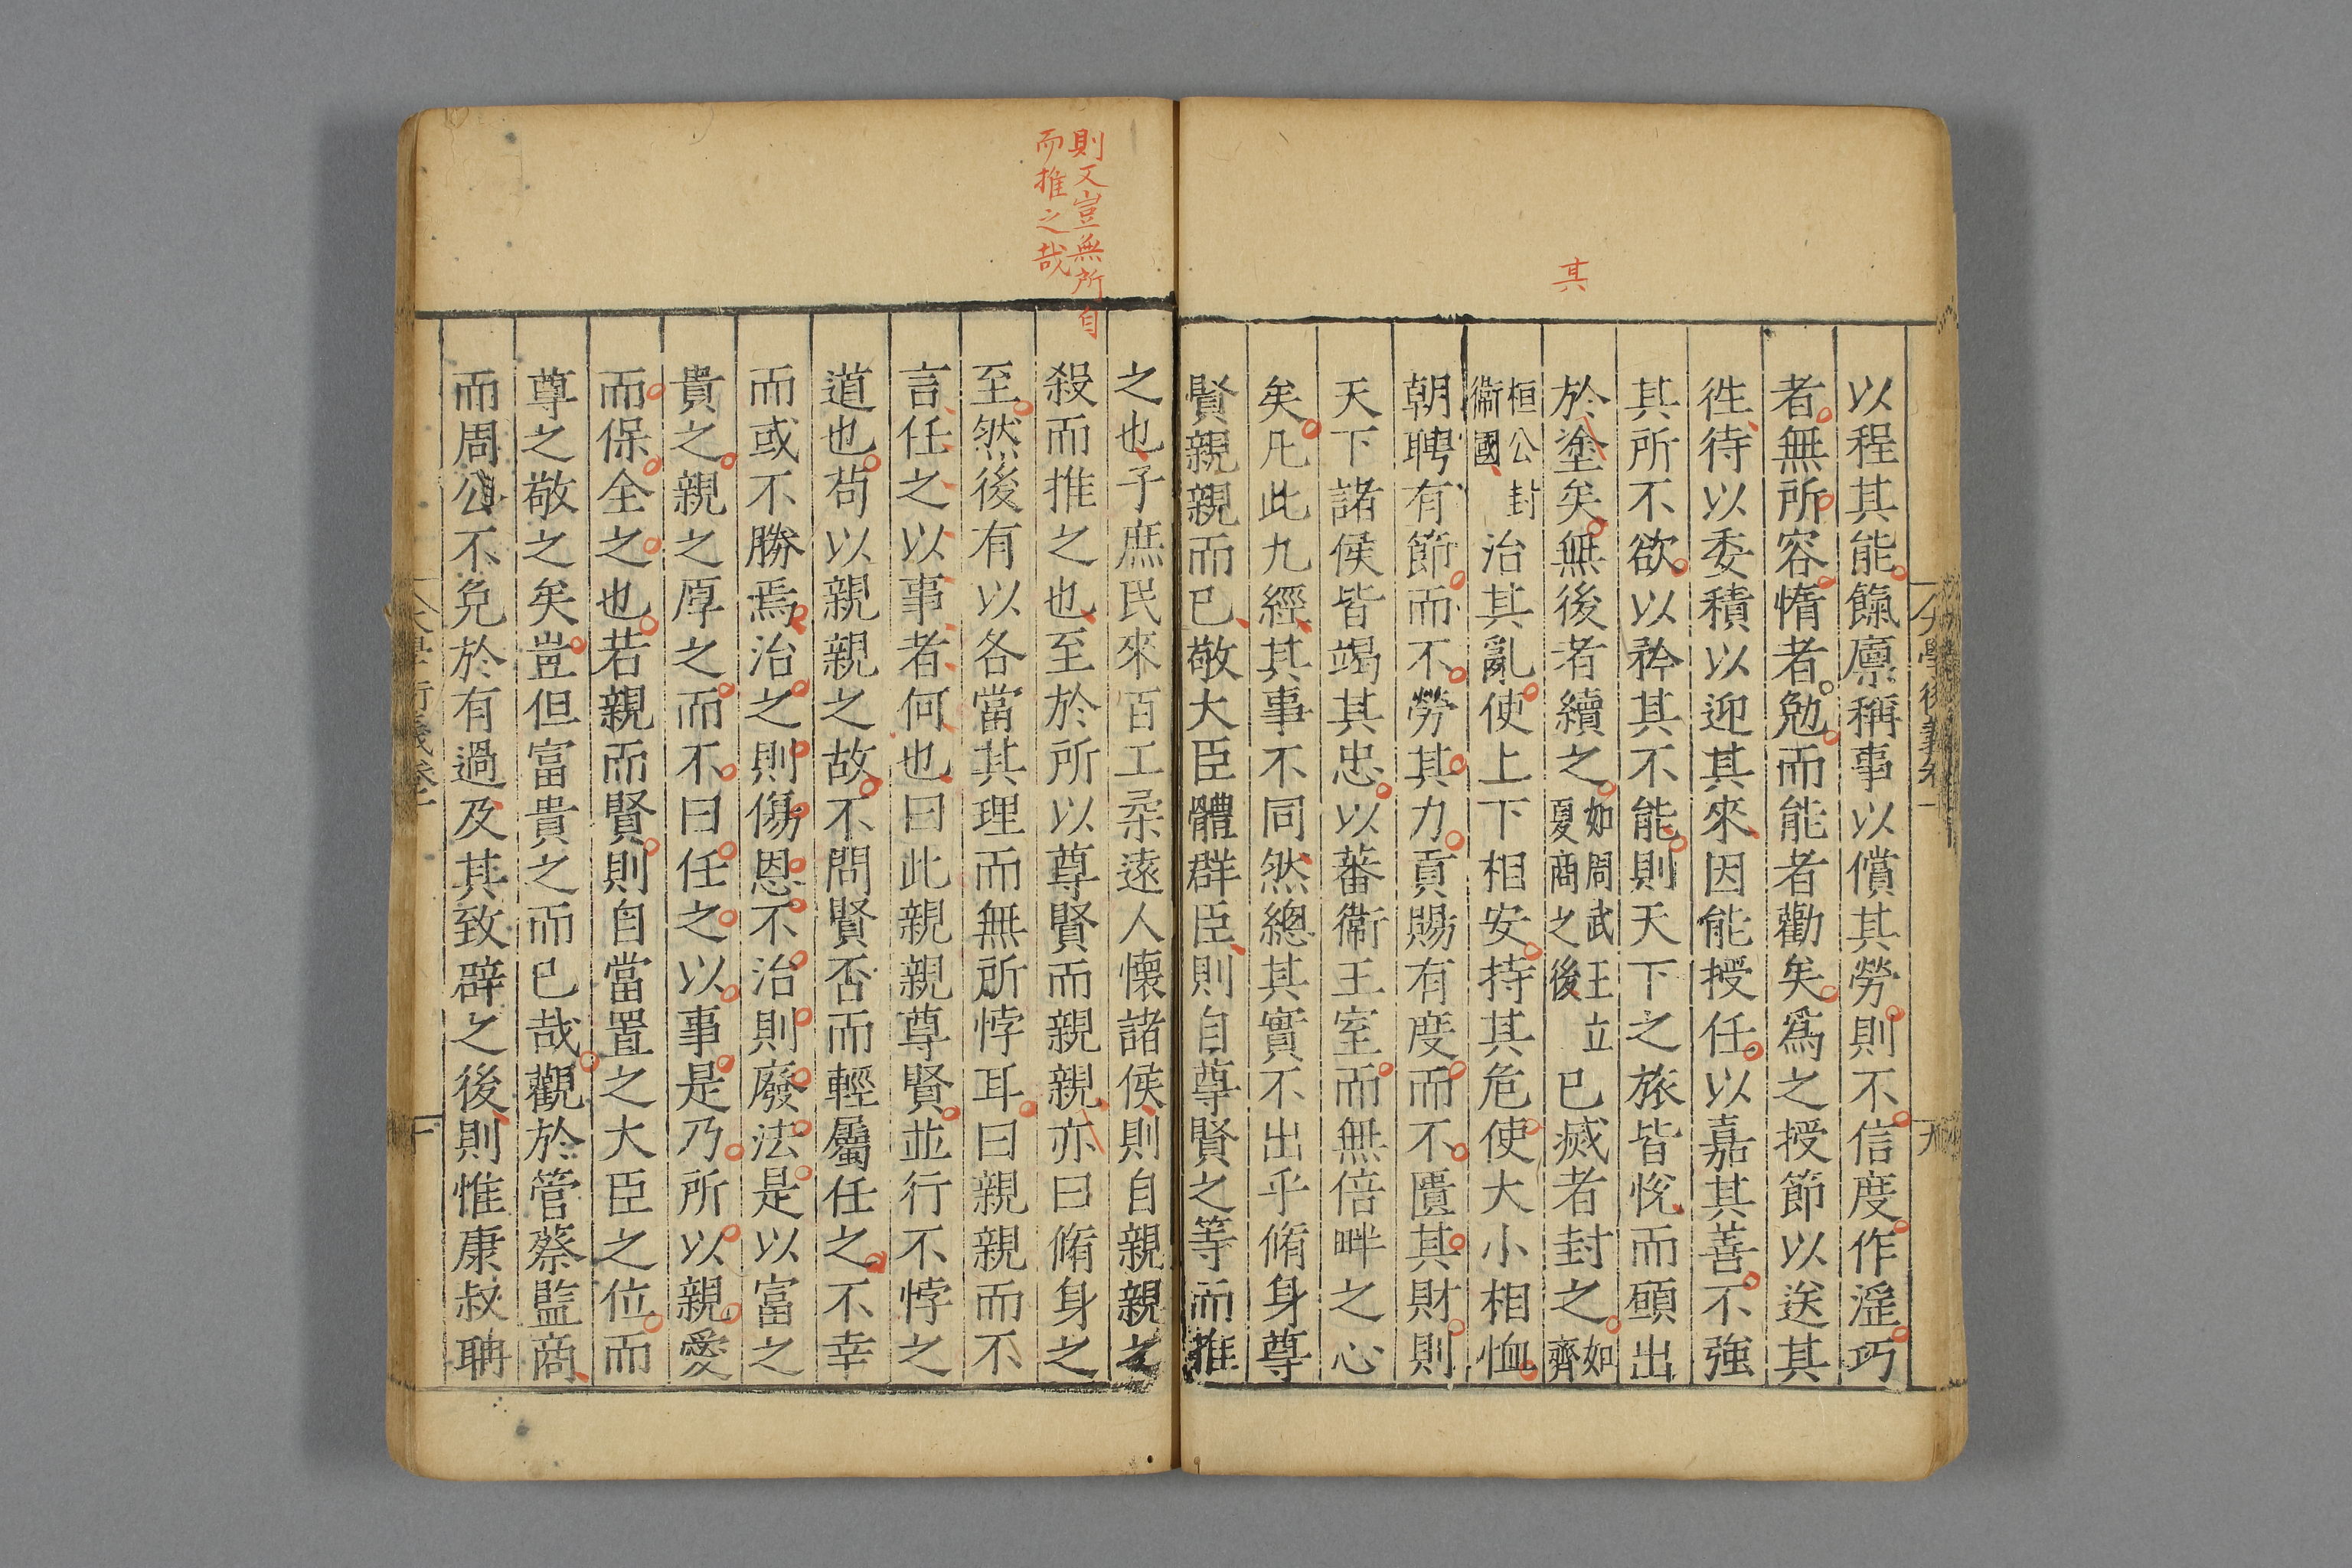 其
以程其能餼廩稱事以償其勞則不信度作淫巧
者無所容惰者勉而能者勸矣爲之授節以送其
徃待以委積以迎其來因能授任以嘉其善不強
其所不欲以矜其不能則天下之旅皆悅而願出
於塗矣無後者續之如周武王立夏商之後已滅者封之如齊
桓公封衞國治其亂使上下相安持其危使大小相恤
朝聘有節而不勞其力貢賜有度而不匱其財則
天下諸侯皆竭其忠以蕃衞王室而無倍畔之心
矣凡此九經其事不同然總其實不出乎脩身尊
賢親親而已敬大臣體群臣則自尊賢之等而推
大學衍義卷一
則又豈無所自
而推之哉
之也子庶民來百工柔遠人懷諸侯則自親親之
殺而推之也至於所以尊賢而親親亦曰脩身之
至然後有以各當其理而無所悖耳曰親親而不
言任之以事者何也曰此親親尊賢並行不悖之
道也苟以親親之故不問賢否而輕屬任之不幸
而或不勝焉治之則傷恩不治則廢法是以富之
貴之親之厚之而不曰任之以事是乃所以親愛
而保全之也若親而賢則自當置之大臣之位而
尊之敬之矣豈但富貴之而已哉觀於管蔡監商
而周公不免於有過及其致辟之後則惟康叔聃
大學衍義卷一